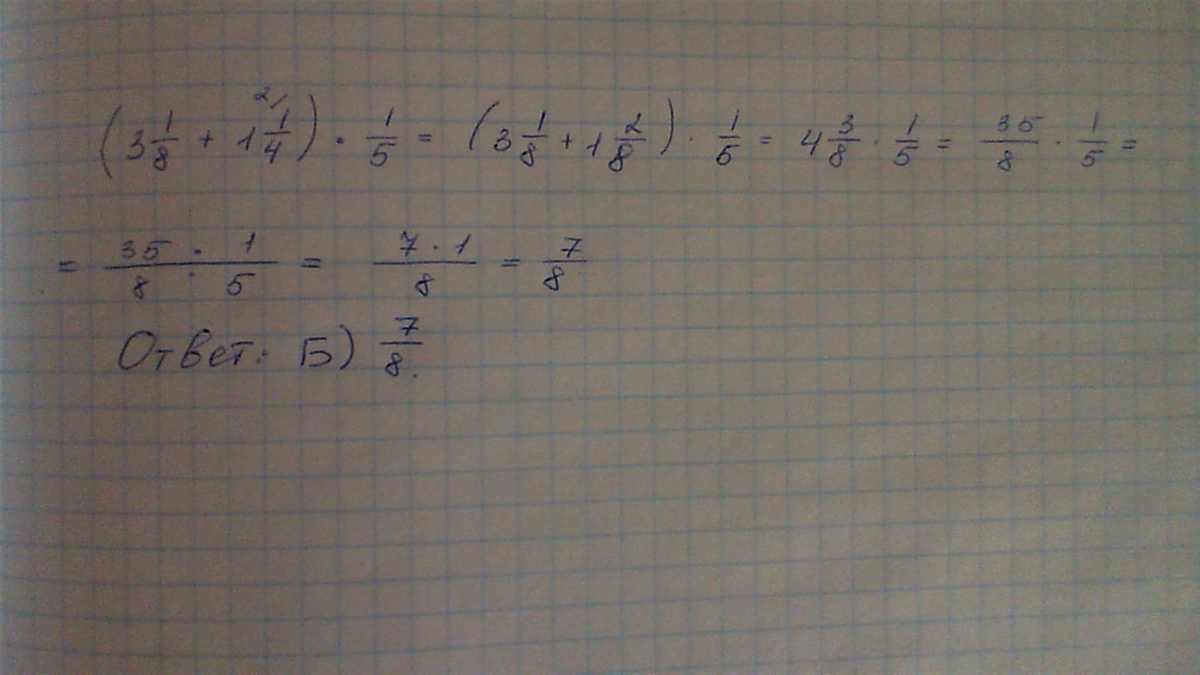 (3 1/8 + 1 1/4 ²⁄) · 1/5 = (3 1/8 + 1 2/8) · 1/5 = 4 3/8 · 1/5 = 35/8 · 1/5 =
= 35 · 1 / 8 · 5 = 7 · 1 / 8 = 7/8
Ответ: Б) 7/8.